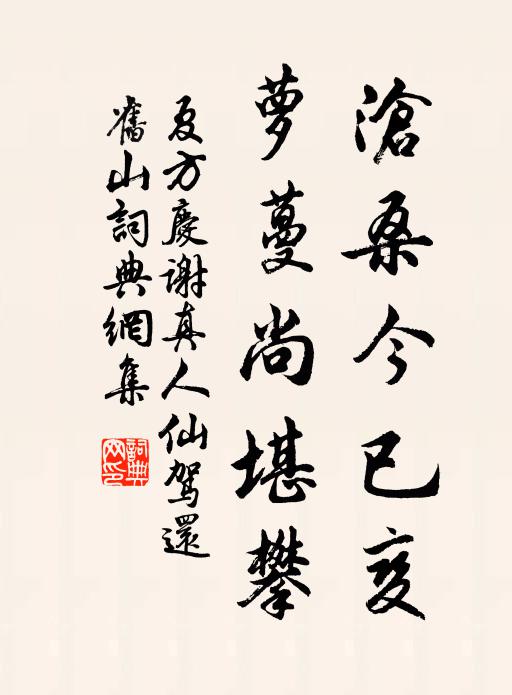 滄桑今已變
蘿蔓尚堪攀
夏方慶謝真人仙駕還
舊山詞典網集
詞典
网印